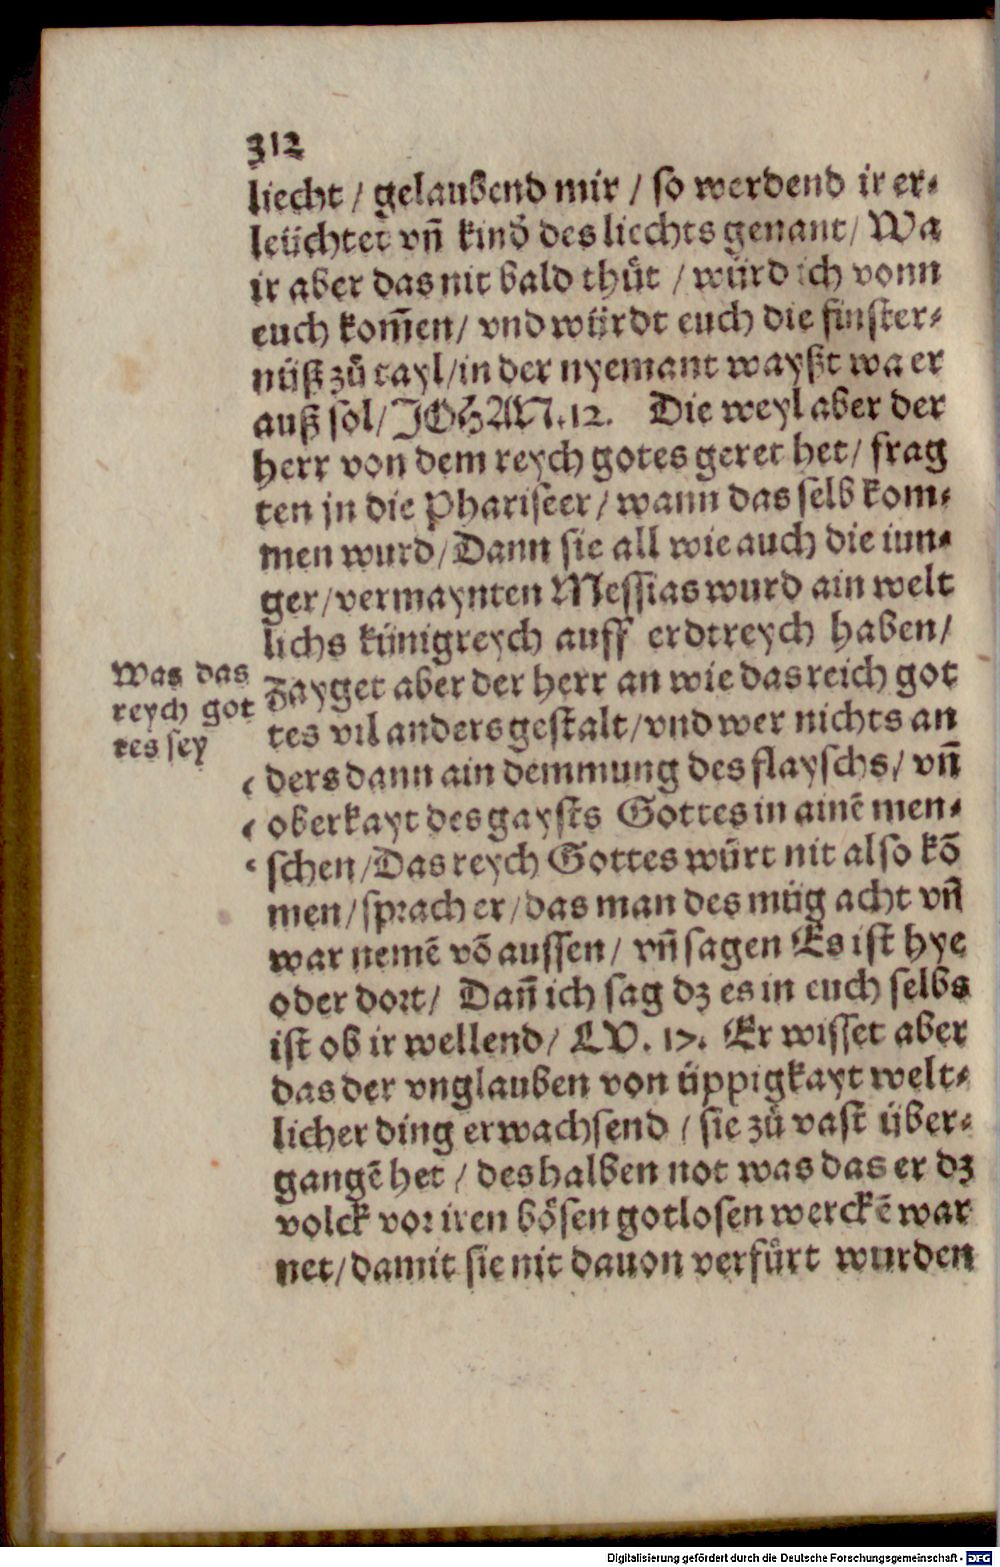 312
liecht / gelaubend mir / so werdend ir er⸗
leüchtet vñ kinď des liechts genant / Wa
ir aber das nit bald thůt / würd ich vonn
euch kom̃en / vnd würdt euch die finster⸗
nüß zů tayl / in der nyemant wayßt wa er
auß sol / JOHAN. 12. Die weyl aber der
herr von dem reych gotes geret het / frag
ten jn die Phariseer / wann das selb kom⸗
men wurd / Dann sie all wie auch die iun⸗
ger / vermaynten Messias wurd ain welt
lichs künigreych auff erdtreych haben /
Was das
reych got
tes sey
Zayget aber der herr an wie das reich got
tes vil anders gestalt / vnd wer nichts an
ders dann ain demmung des flayschs / vñ
oberkayt des gaysts Gottes in ainē men⸗
schen / Das reych Gottes würt nit also kō
men / sprach er / das man des müg acht vñ
war nemē vō aussen / vñ sagen Es ist hye
oder dort / Dañ ich sag dz es in euch selbs
ist ob ir wellend / LV. 17. Er wisset aber
das der vnglauben von üppigkayt welt⸗
licher ding erwachsend / sie zů vast über⸗
gangē het / deshalben not was das er dz
volck vor iren bösen gotlosen werckē war
net / damit sie nit dauon verfůrt wurden
Digitalisierung gefördert durch die Deutsche Forschungsgemeinschaft - DFG